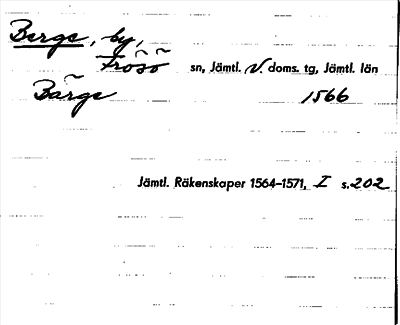 Berge, by,
Frösö sn, Jämtl. V. doms. tg, Jämtl. län
Bärge 1566
Jämtl. Räkenskaper 1564–1571, I s. 202